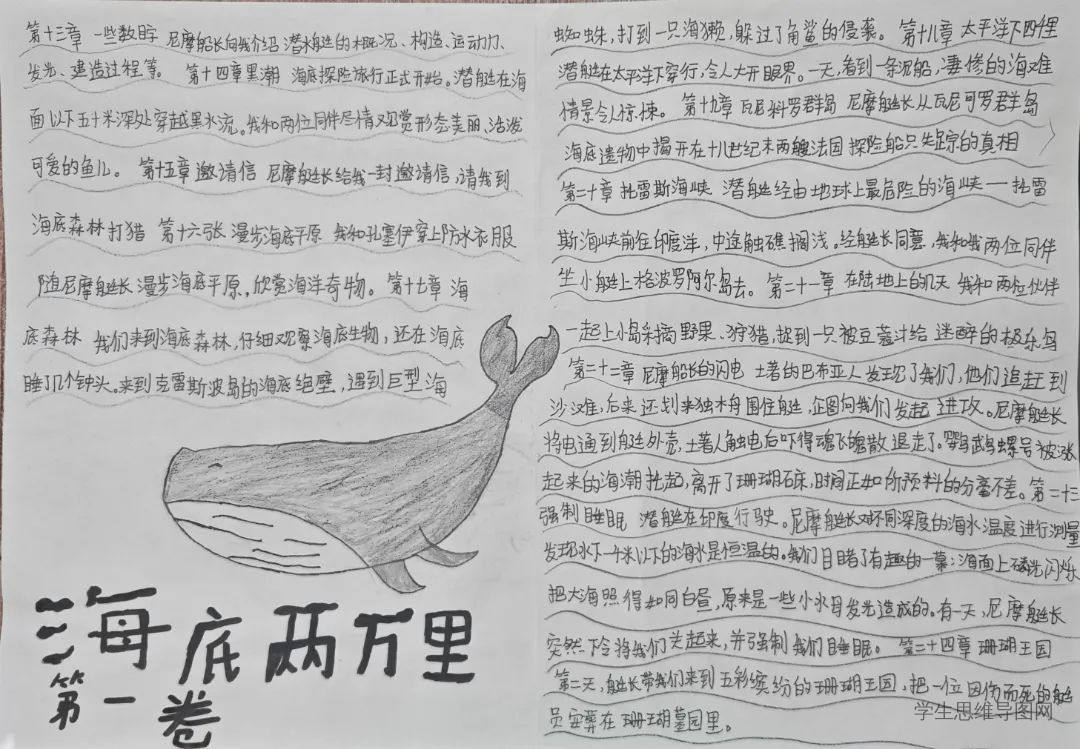 第十三章 一些数字 尼摩船长向我介绍潜水艇的概况、构造、运动力、
发光、建造过程等。 第十四章黑潮 海底探险旅行正式开始。潜艇在海
面以下五十米深处穿越黑水流。我和两位同伴尽情观赏形态美丽、活泼
可爱的鱼儿。 第十五章 邀请信 尼摩艇长给我一封邀请信,请我到
海底森林打猎 第十六张 漫步海底平原 我和孔塞伊穿上防水衣服
随尼摩艇长漫步海底平原,欣赏海洋奇物。 第十七章 海
底森林 我们来到海底森林,仔细观察海底生物,还在海底
睡了几个钟头。来到克雷斯波岛的海底绝壁,遇到巨型海
海底两万里
第一卷
蜘蛛,打到一只海獭,躲过了角鲨的侵袭。 第十八章 太平洋下四千里
潜艇在太平洋下穿行,令人大开眼界。一天,看到一条沉船,凄惨的海难
情景令人惊悚。 第十九章 瓦尼科罗群岛 尼摩艇长从瓦尼可罗群岛
海底遗物中揭开在十八世纪末两艘法国探险船只失踪的真相
第二十章 托雷斯海峡 潜艇经由地球上最危险的海峡一托雷
斯海峡前往印度洋,中途触礁搁浅。经艇长同意,我和我两位同伴
坐小艇上格波罗阿尔岛去。 第二十一章 在陆地上的几天 我和两位伙伴
一起上小岛采摘野果、狩猎,捉到一只被豆蔻汁给迷醉的极乐鸟
第二十二章 尼摩船长的闪电 土著的巴布亚人发现了我们,他们追赶到
沙滩,后来还划来独木舟围住艇,企图向我们发起进攻。尼摩艇长
将电通到艇外壳,土著人触电后吓得魂飞魄散退走了。鹦鹉螺号被涨
起来的海潮托起,离开了珊瑚石床,时间正如你预料的分毫不差。第二十三
强制睡眠 潜艇在印度行驶。尼摩艇长对不同深度的海水温度进行测量
发现水下一千米以下的海水是恒温的。我们目睹了有趣的一幕:海面上磷光闪烁
把大海照得如同白昼,原来是一些小水母发光造成的。有一天,尼摩艇长
突然下令将我们关起来,并强制我们睡眠。 第二十四章 珊瑚王国
第二天,艇长带我们来到五彩缤纷的珊瑚王国,把一位因伤而死的艇
员安葬在珊瑚墓园里。
学生思维导图网